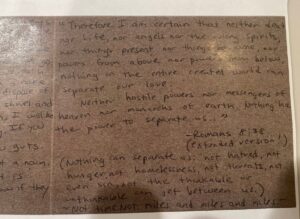 "Therefore I am certain that neither death
nor life, nor angels nor the ruling spirits,
nor things present nor things to come, nor
powers from above nor powers from below
make nothing in the entire created world can
dispose of separate our love.
shovel and Neither hostile powers nor messengers of
I will be heaven nor monarchs of earth. Nothing has
If you the power to separate us..."
guts. ~Romans 8:38
a noun. (extended version!)
(Nothing can separate us: not hatred, not
hunger, not homelessness, not threats, not
if they even sin, not the thinkable or
unthinkable can get between us.)
~Not time. Not miles and miles and miles